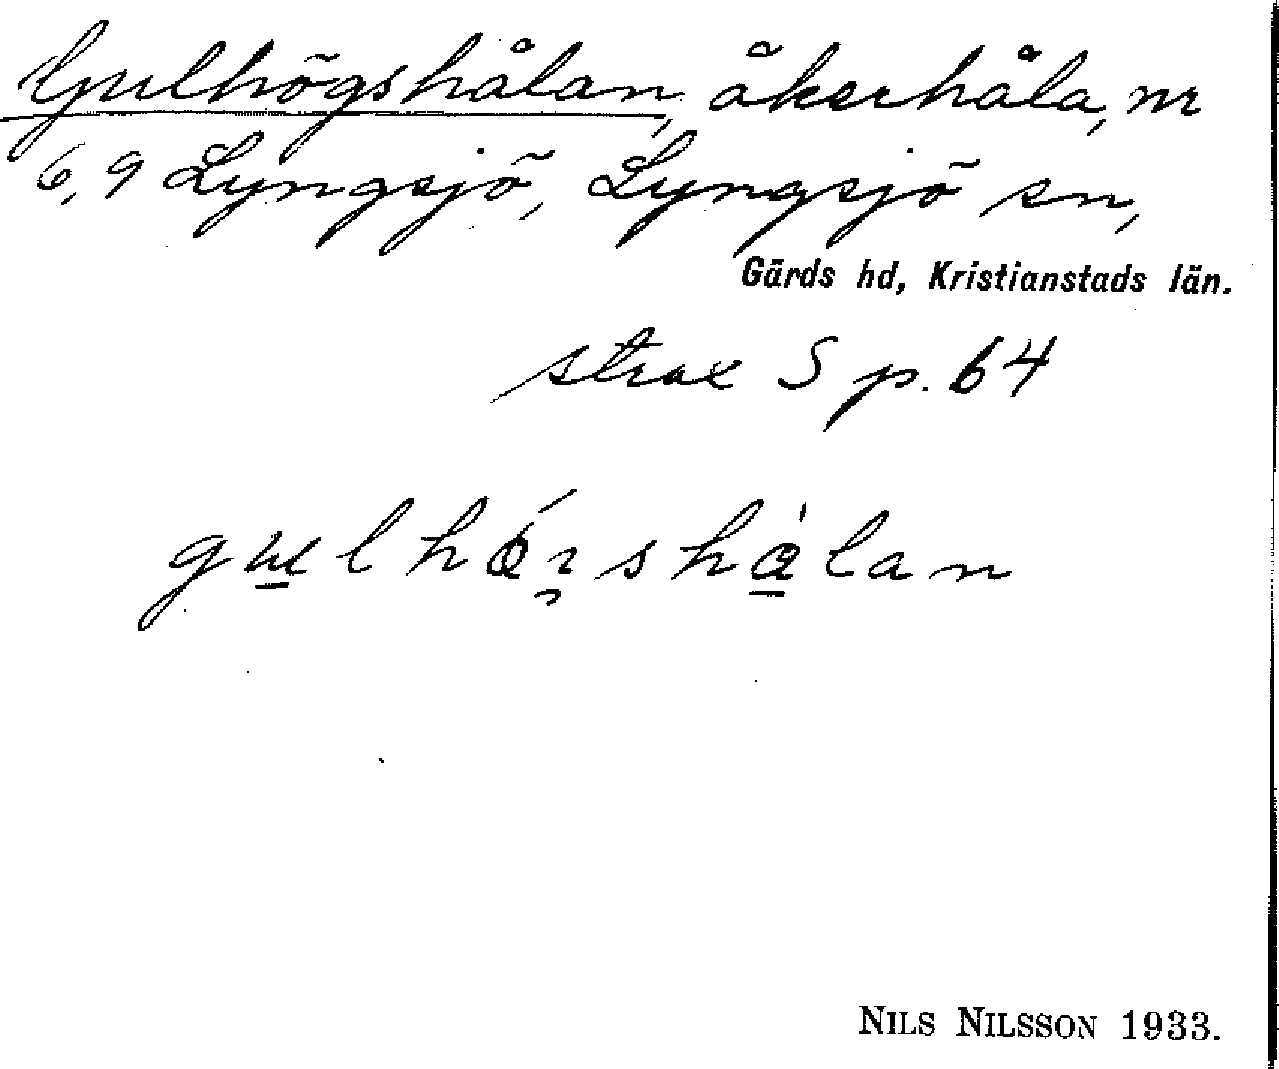 Gulhögshålan, åkerhåla, nr
6, 9 Lyngsjö, Lyngsjö sn,
Gärds hd, Kristianstads län.
strax S p. 64
NILS NILSSON 1933.